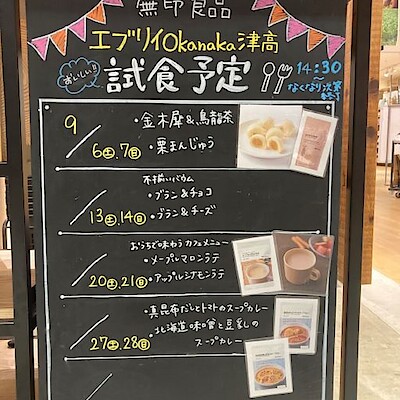 無印良品
エブリイOkanaka津高
おいしい!!
試食予定
14:30
〜
なくなり次第
終了
9
6㊏.7㊐
・金木犀&烏龍茶
・栗まんじゅう
不揃いバウム
・ブラン&チョコ
13㊏.14㊐
・ブラン&チーズ
おうちで味わうカフェメニュー
・メープルマロンラテ
20㊏.21㊐
・アップルシナモンラテ
・真昆布だしとトマトのスープカレー
・北海道味噌と豆乳の
スープカレー
27㊏.28㊐